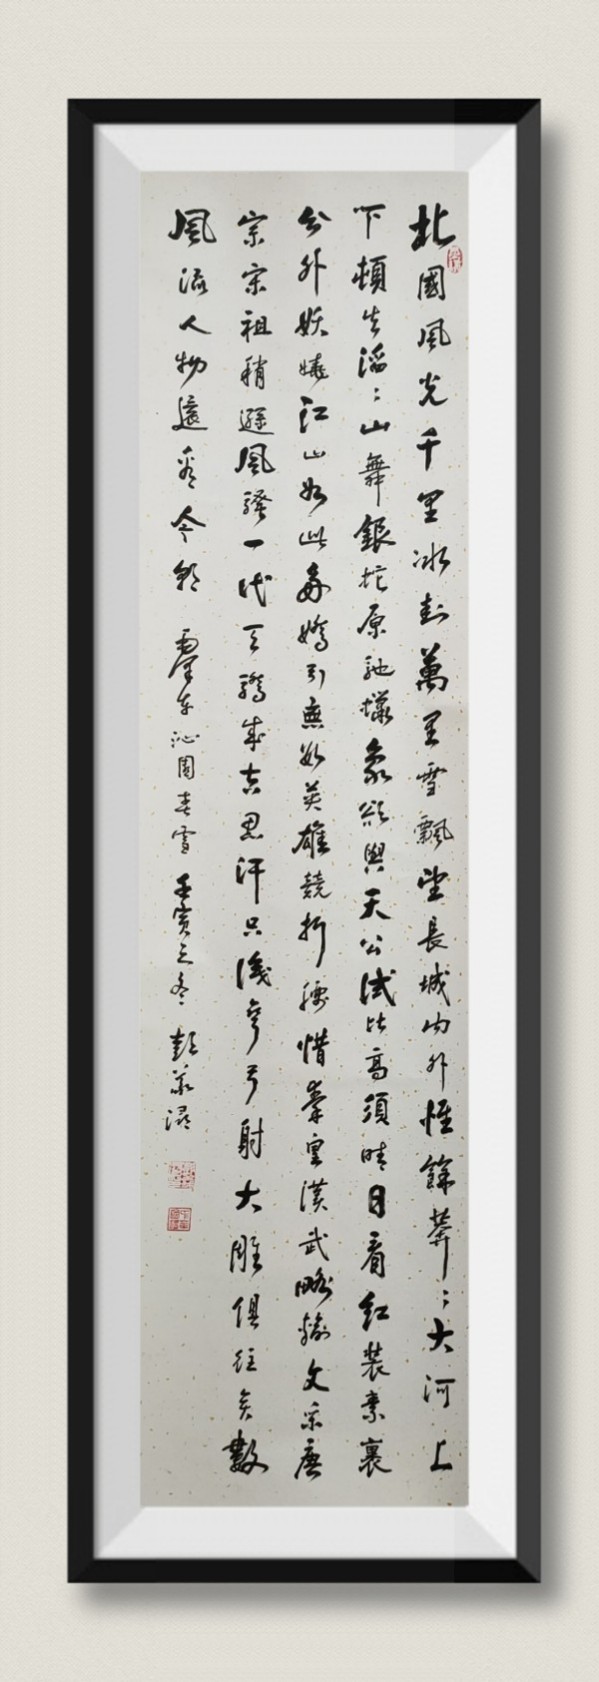 北國風光千里冰封萬里雪飄望長城內外惟餘莽〻大河上
下頓失滔〻山舞銀蛇原馳蠟象欲與天公試比高須晴日看紅裝素裹
分外妖嬈江山如此多嬌引無數英雄競折腰惜秦皇漢武略輸文采唐
宗宋祖稍遜風騷一代天驕成吉思汗只識彎弓射大雕俱往矣數
風流人物還看今朝 澤东沁園春雪 壬寅之冬 彭